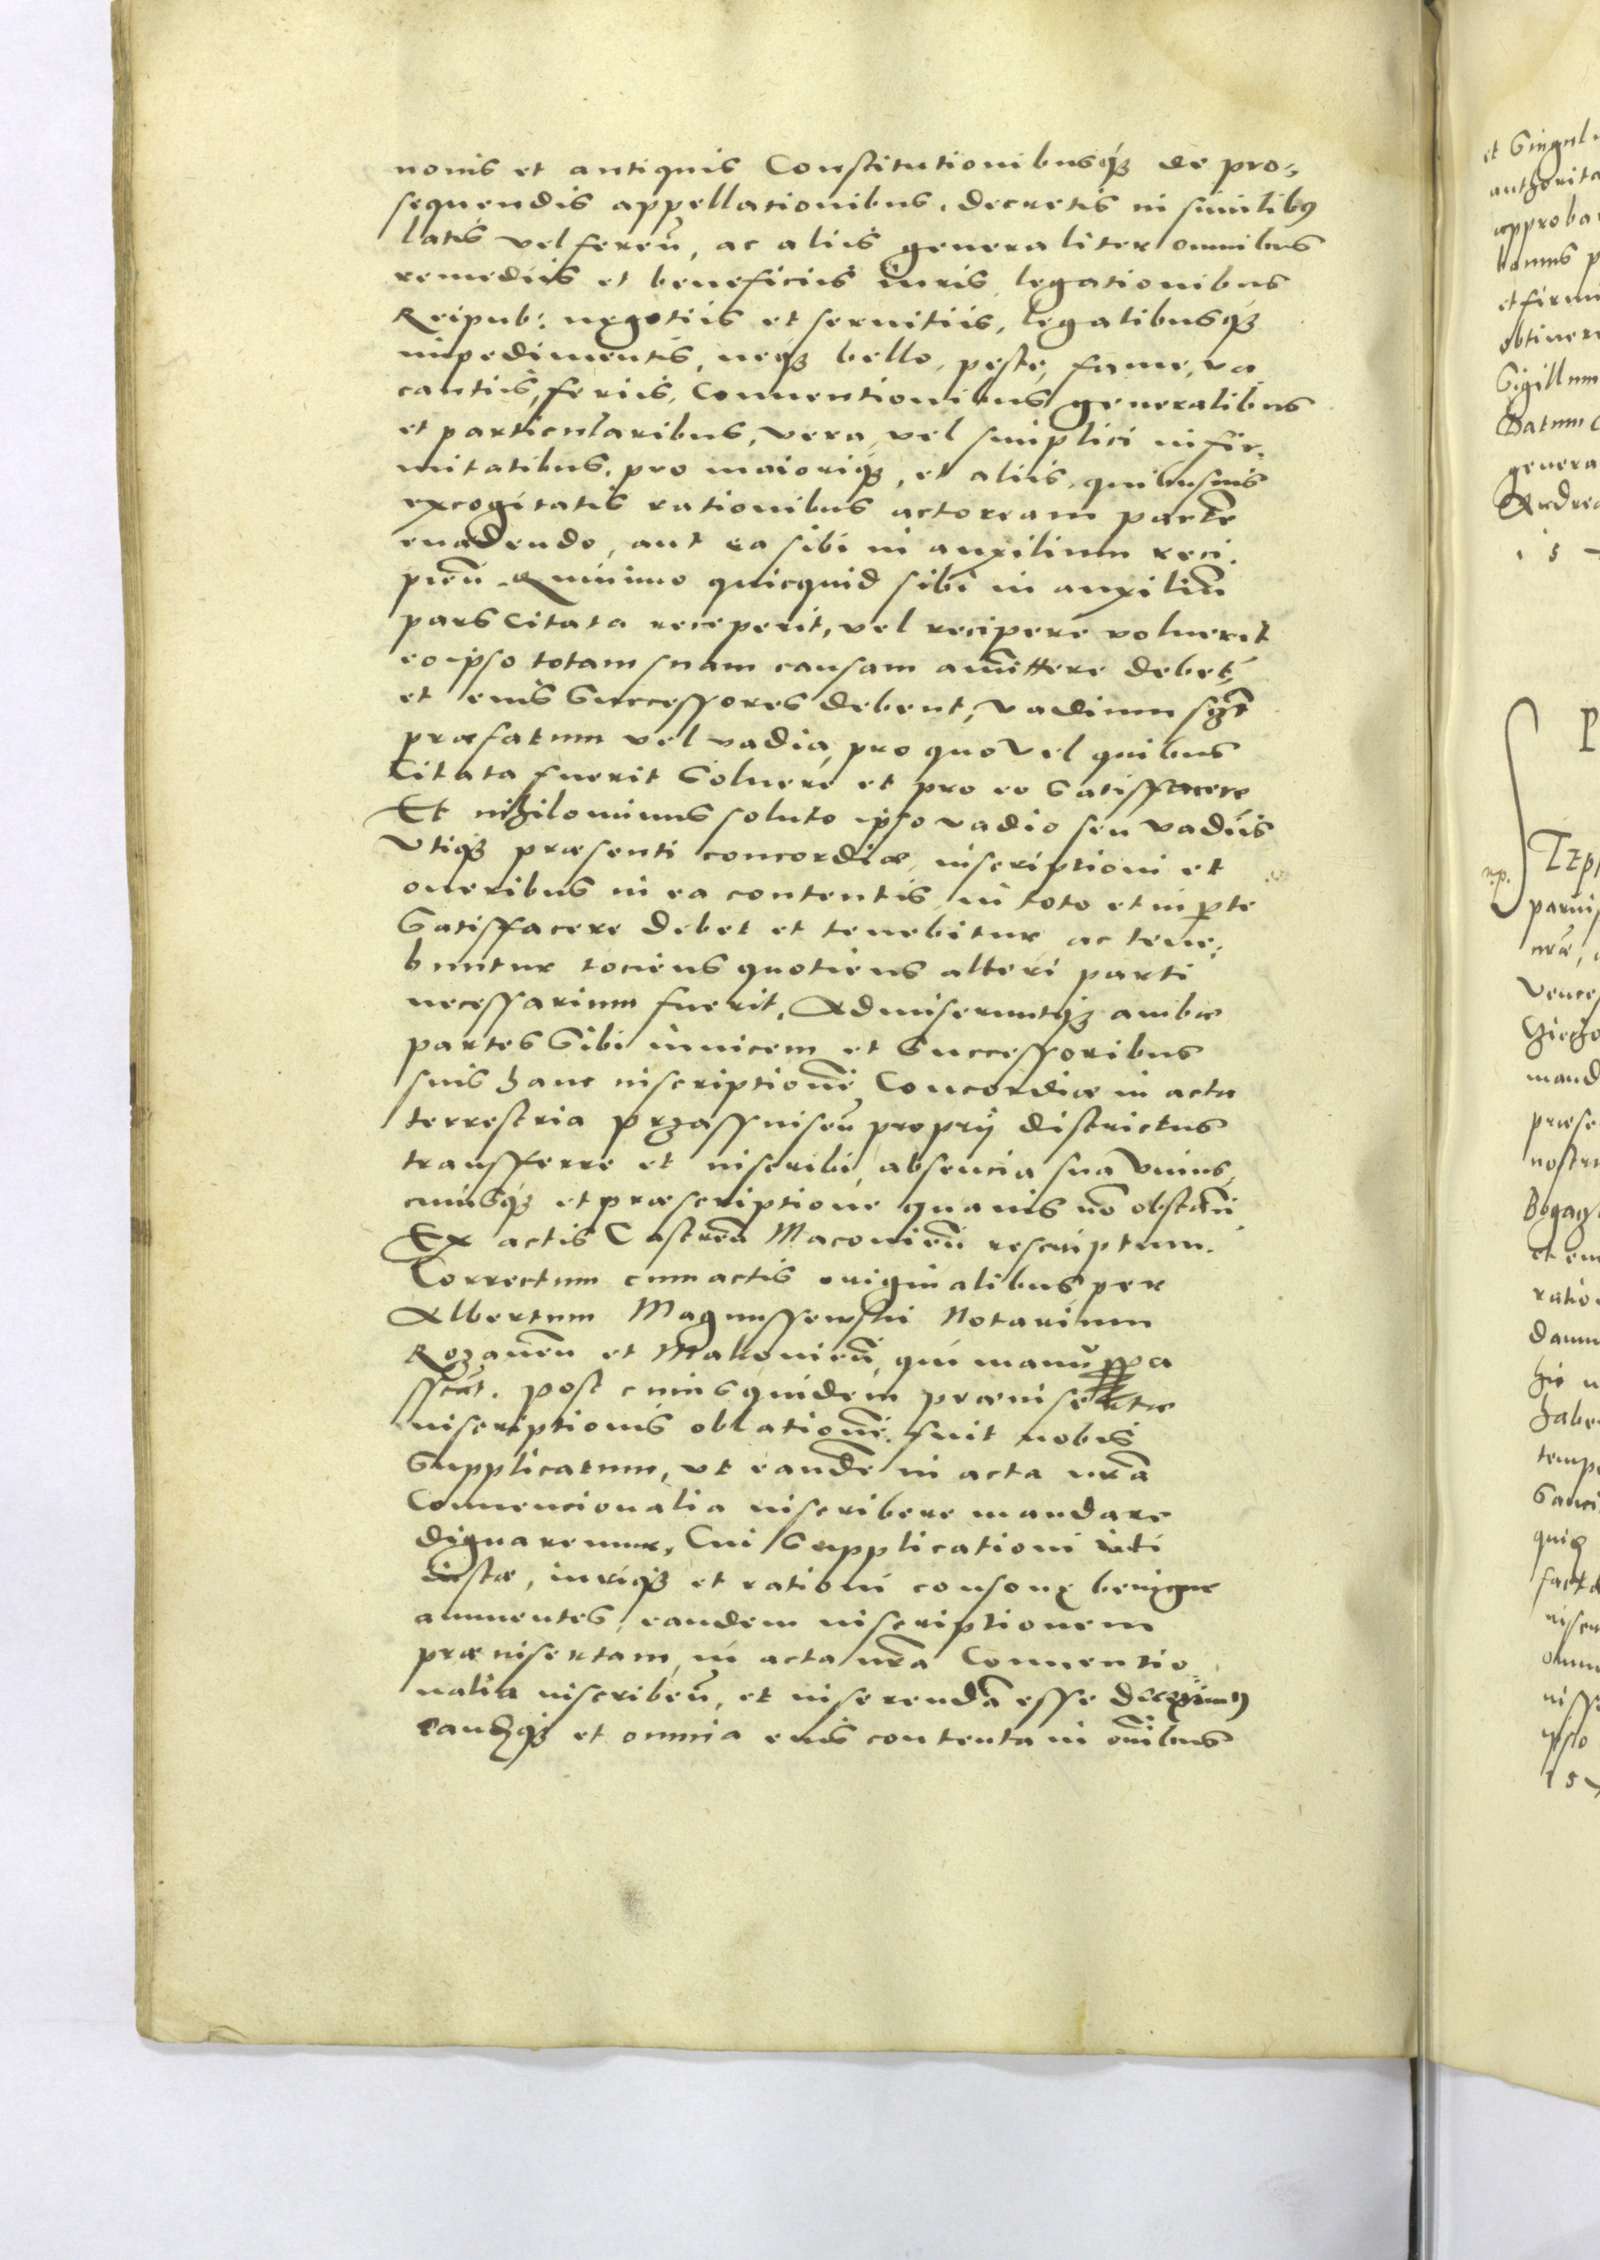 nouis et antiquis Constitutionibusq3 de pro-
sequendis appellationibus, decretis in similib9
latis vel feren̄, ac aliis generaliter omnibus
remediis et beneficiis iuris, legationibus
Reipub: negotiis et seruitiis, legalibusq3
impedimentis, neq3 bello, peste, fame, va
cantiis, feriis, Conuentionibus generalibus
et particularibus, vera, vel simplici infir-
mitatibus, pro maioriq3, et aliis, quibusuis
excogitatis rationibus actoream partē
euadendo, aut ea sibi in auxilium reci-
pien̄. Quinimo quicquid sibi in auxiliū
pars citata receperit, vel recipere voluerit
eo ipso totam suam causam amittere debet,
et eius Successores debent, vadium
præfatum vel vadia, pro quo vel quibus
Citata fuerit Soluere et pro eo Satisffacere
Et nihilominus soluto ipso vadio seu vadiis
Vtiq3 præsenti concordiæ inscriptioni et
oneribus in ea contentis in toto et in pte
Satisffacere debet et tenebitur ac tene-
buntur tociens quotiens alteri parti
necessarium fuerit, Admiseruntq3 ambæ
partes Sibi inuicem et Successoribus
suis hanc inscriptionē Concordiæ in acta
terrestria Przassnisen̄ proprii districtus
transfferre et inscribi, absencia sua vnius
cuiusq3 et præscriptione quauis nō obstan̄
Ex actis Castren̄ Maconien̄ rescriptum.
Correctum cum actis originalibus per
Albertum Magnussewski Notarium
Rozanen̄ et Makonien̄, qui manu ppa
sscrt. Post cuius quidem præinsertæ
inscriptionis oblationē, fuit nobis
Supplicatum, vt eandē in acta nrā
Conuencionalia inscribere mandare
dignaremur, Cui Supplicationi uti
iustæ, iuriq3 et rationi consonę benigne
annuentes, eandem inscriptionem
præinsertam, in acta nrā Conuentio-
nalia inscriben̄, et inserendā esse decreuim9
eandq3 et omnia eius contenta in oīnibus
n.p.